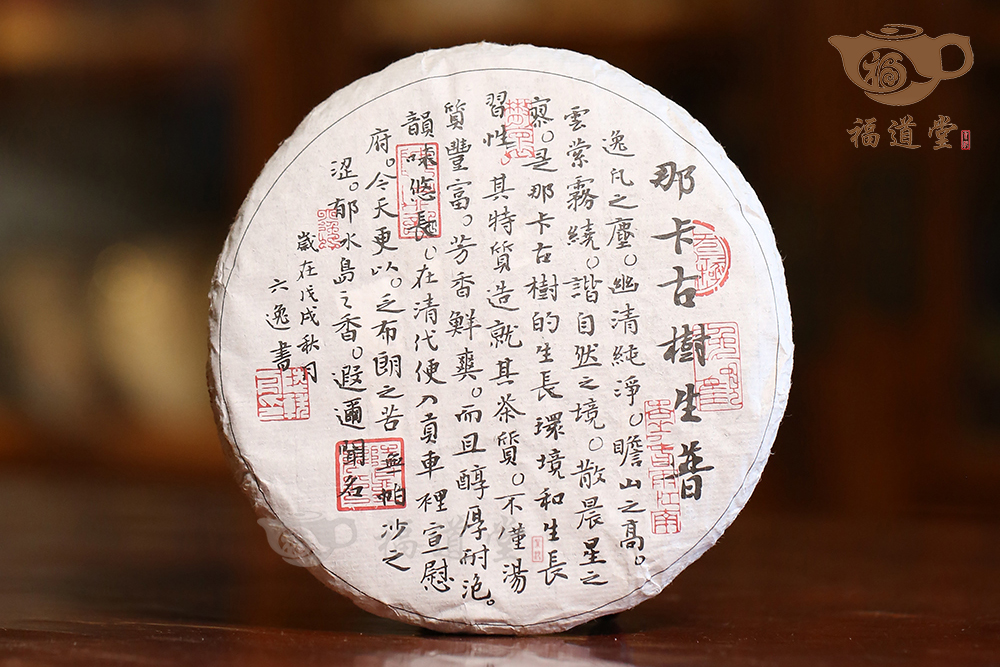 那卡古樹生普
逸凡之塵。幽清純淨。瞻山之高。
雲縈霧繞。諧自然之境。散晨星之
察。是那卡古樹的生長環境和生長
習性。其特質造就其茶質。不僅湯
質豐富。芳香鮮爽。而且醇厚耐泡。
韻味悠長。在清代便入貢車裡宣慰
府。今天更以。乏布朗之苦 無帕沙之
澀。郁水島之香。遐邇聞名
歲在戊戌秋月
六逸書
福道堂
福道堂